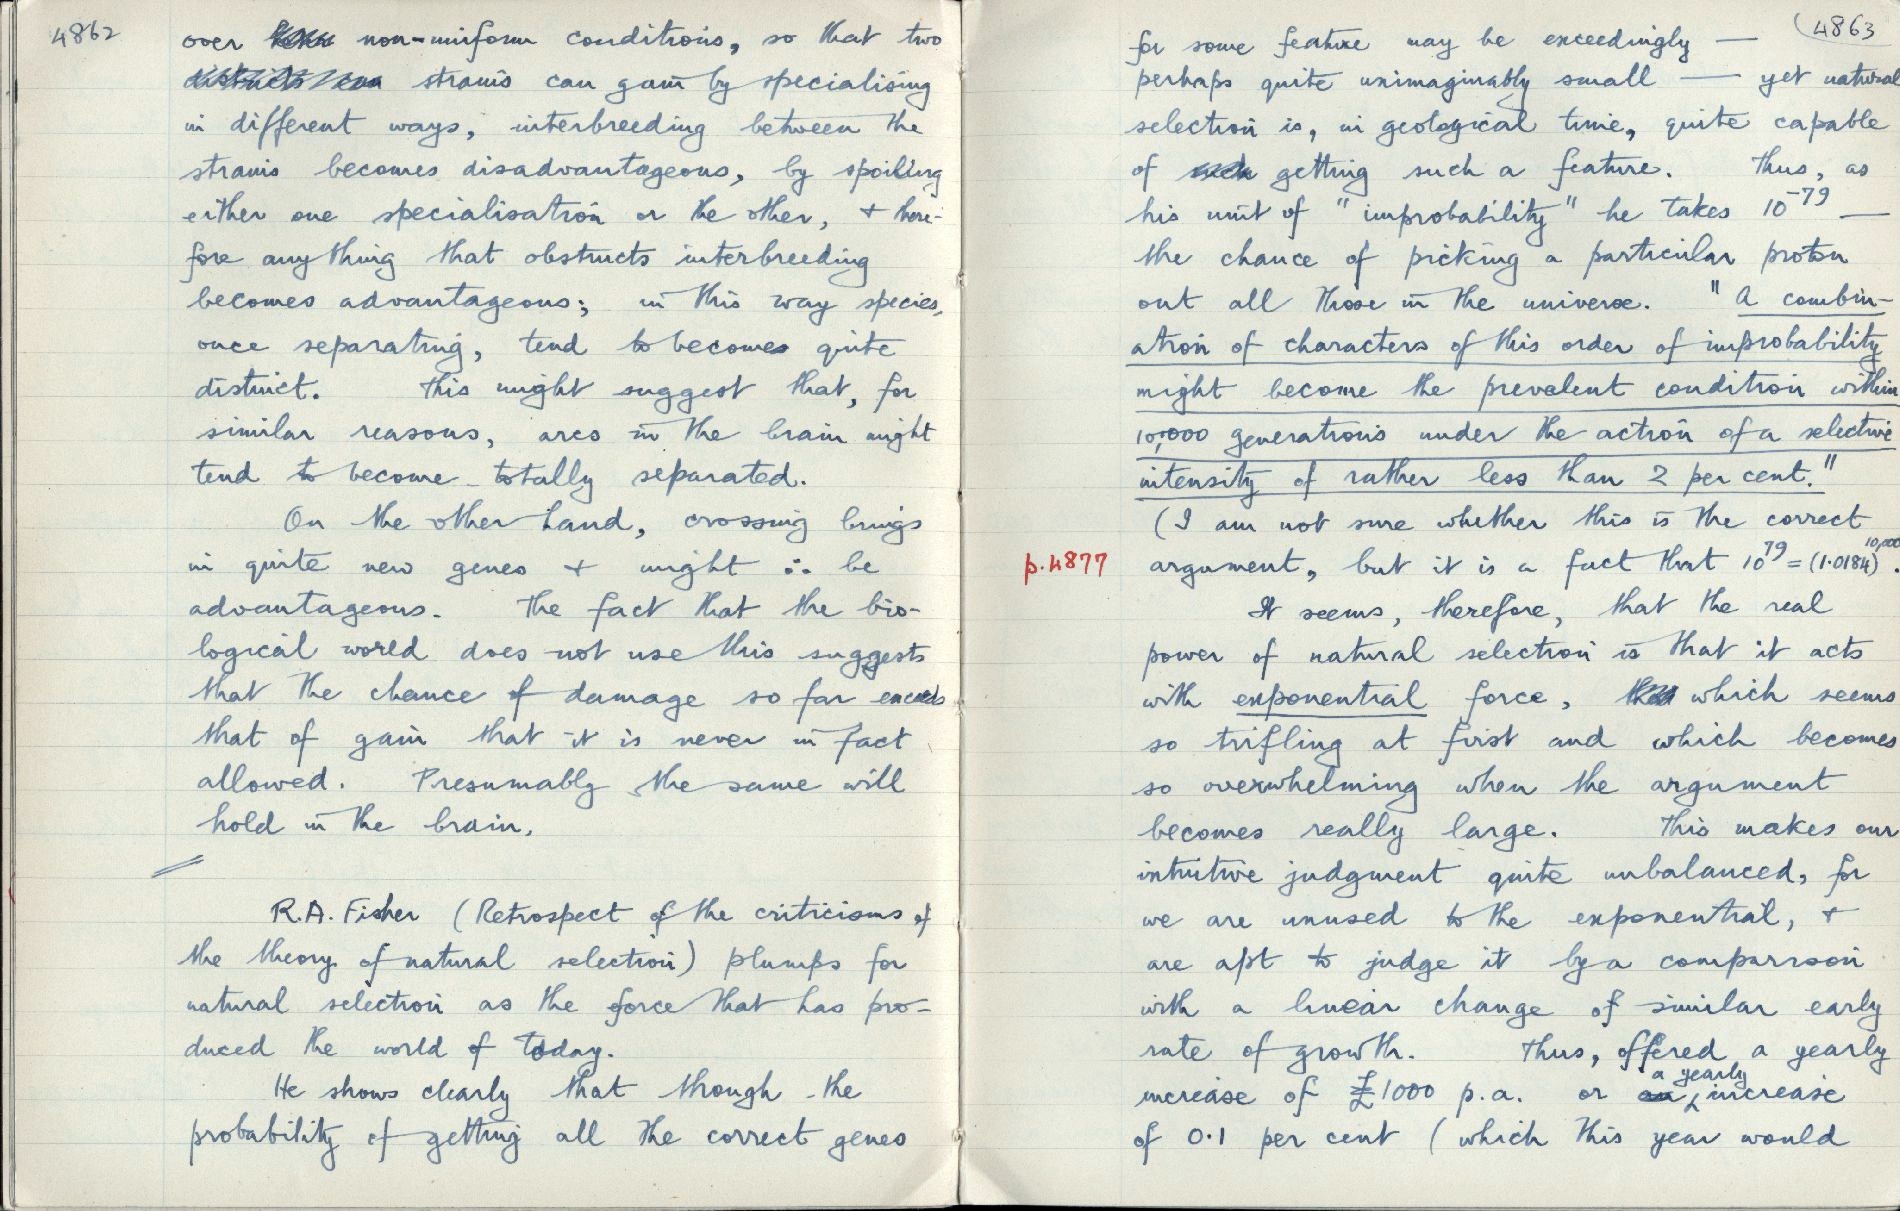 4862
over non-uniform conditions, so that two
strains can gain by specialising
in different ways, interbreeding between the
strains becomes disadvantageous, by spoiling
either one specialisation or the other, & there-
fore anything that obstructs interbreeding
becomes advantageous; in this way species,
once separating, tend to becomes quite
distinct. This might suggest that, for
similar reasons, arcs in the brain might
tend to become totally separated.
On the other hand, crossing brings
in quite new genes & might ∴ be
advantageous. The fact that the bio-
logical world does not use this suggests
that the chance of damage so far exceeds
that of gain that it is never in fact
allowed. Presumably the same will
hold in the brain.
R.A. Fisher (Retrospect of the criticisms of
the theory of natural selection) plumps for
natural selection as the force that has pro-
duced the world of today.
He shows clearly that though the
probability of getting all the correct genes
4863
for some feature may be exceedingly —
perhaps quite unimaginably small — yet natural
selection is, in geological time, quite capable
of getting such a feature. Thus, as
his unit of "improbability" he takes 10⁻⁷⁹ —
the chance of picking a particular proton
out all those in the universe. "A combin-
ation of characters of this order of improbability
might become the prevalent condition within
10,000 generations under the action of a selective
intensity of rather less than 2 per cent."
(I am not sure whether this is the correct
p.4877
argument, but it is a fact that 10⁷⁹ = (1.0184)¹⁰'⁰⁰⁰.
It seems, therefore, that the real
power of natural selection is that it acts
with exponential force, which seems
so trifling at first and which becomes
so overwhelming when the argument
becomes really large. This makes our
intuitive judgment quite unbalanced, for
we are unused to the exponential, &
are apt to judge it by a comparison
with a linear change of similar early
rate of growth. Thus, offered a yearly
increase of £1000 p.a. or a yearly increase
of 0.1 per cent (which this year would